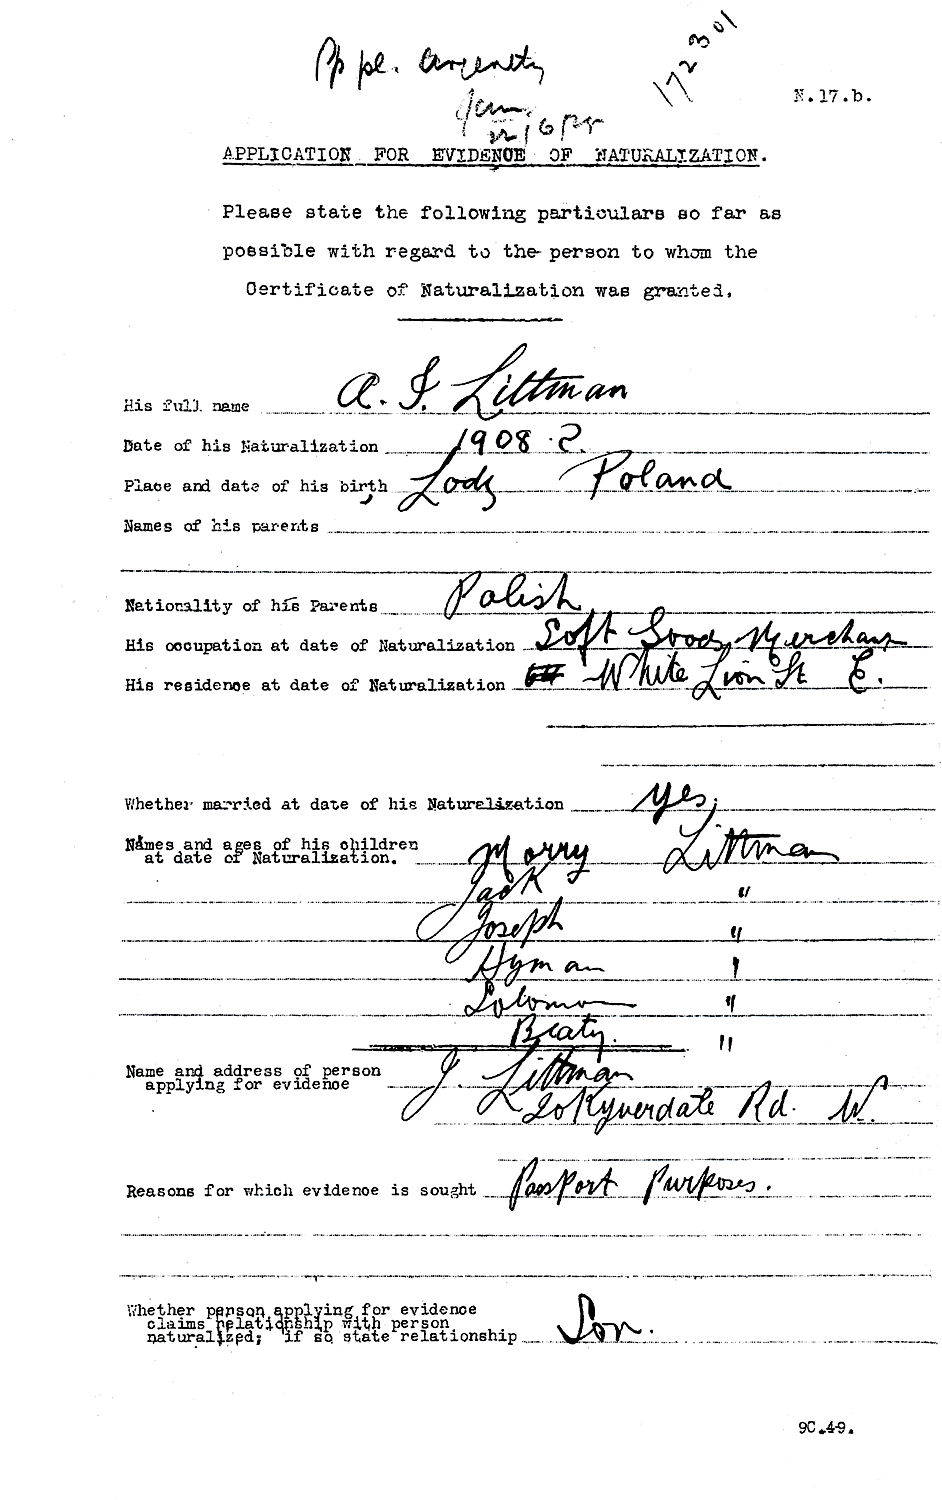 172301
pl. urgently
N.17.b.
APPLICATION FOR EVIDENCE OF NATURALIZATION.
Please state the following particulars so far as
possible with regard to the person to whom the
Certificate of Naturalization was granted.
His full name A. I. Littman
Date of his Naturalization 1908 ?
Place and date of his birth Lodz Poland
Names of his parents
Nationality of his Parents Polish
His occupation at date of Naturalization Soft Goods Merchant
His residence at date of Naturalization White Lion St E.
Whether married at date of his Naturalization Yes,
Names and ages of his children
at date of Naturalization. Morry Littman
Jack "
Joseph "
Hyman "
Solomon "
Beaty. "
Name and address of person
applying for evidence J. Littman
20 Kyverdale Rd. N.
Reasons for which evidence is sought Passport Purposes.
Whether person applying for evidence
claims relationship with person
naturalized; if so state relationship Son.
9C.49.